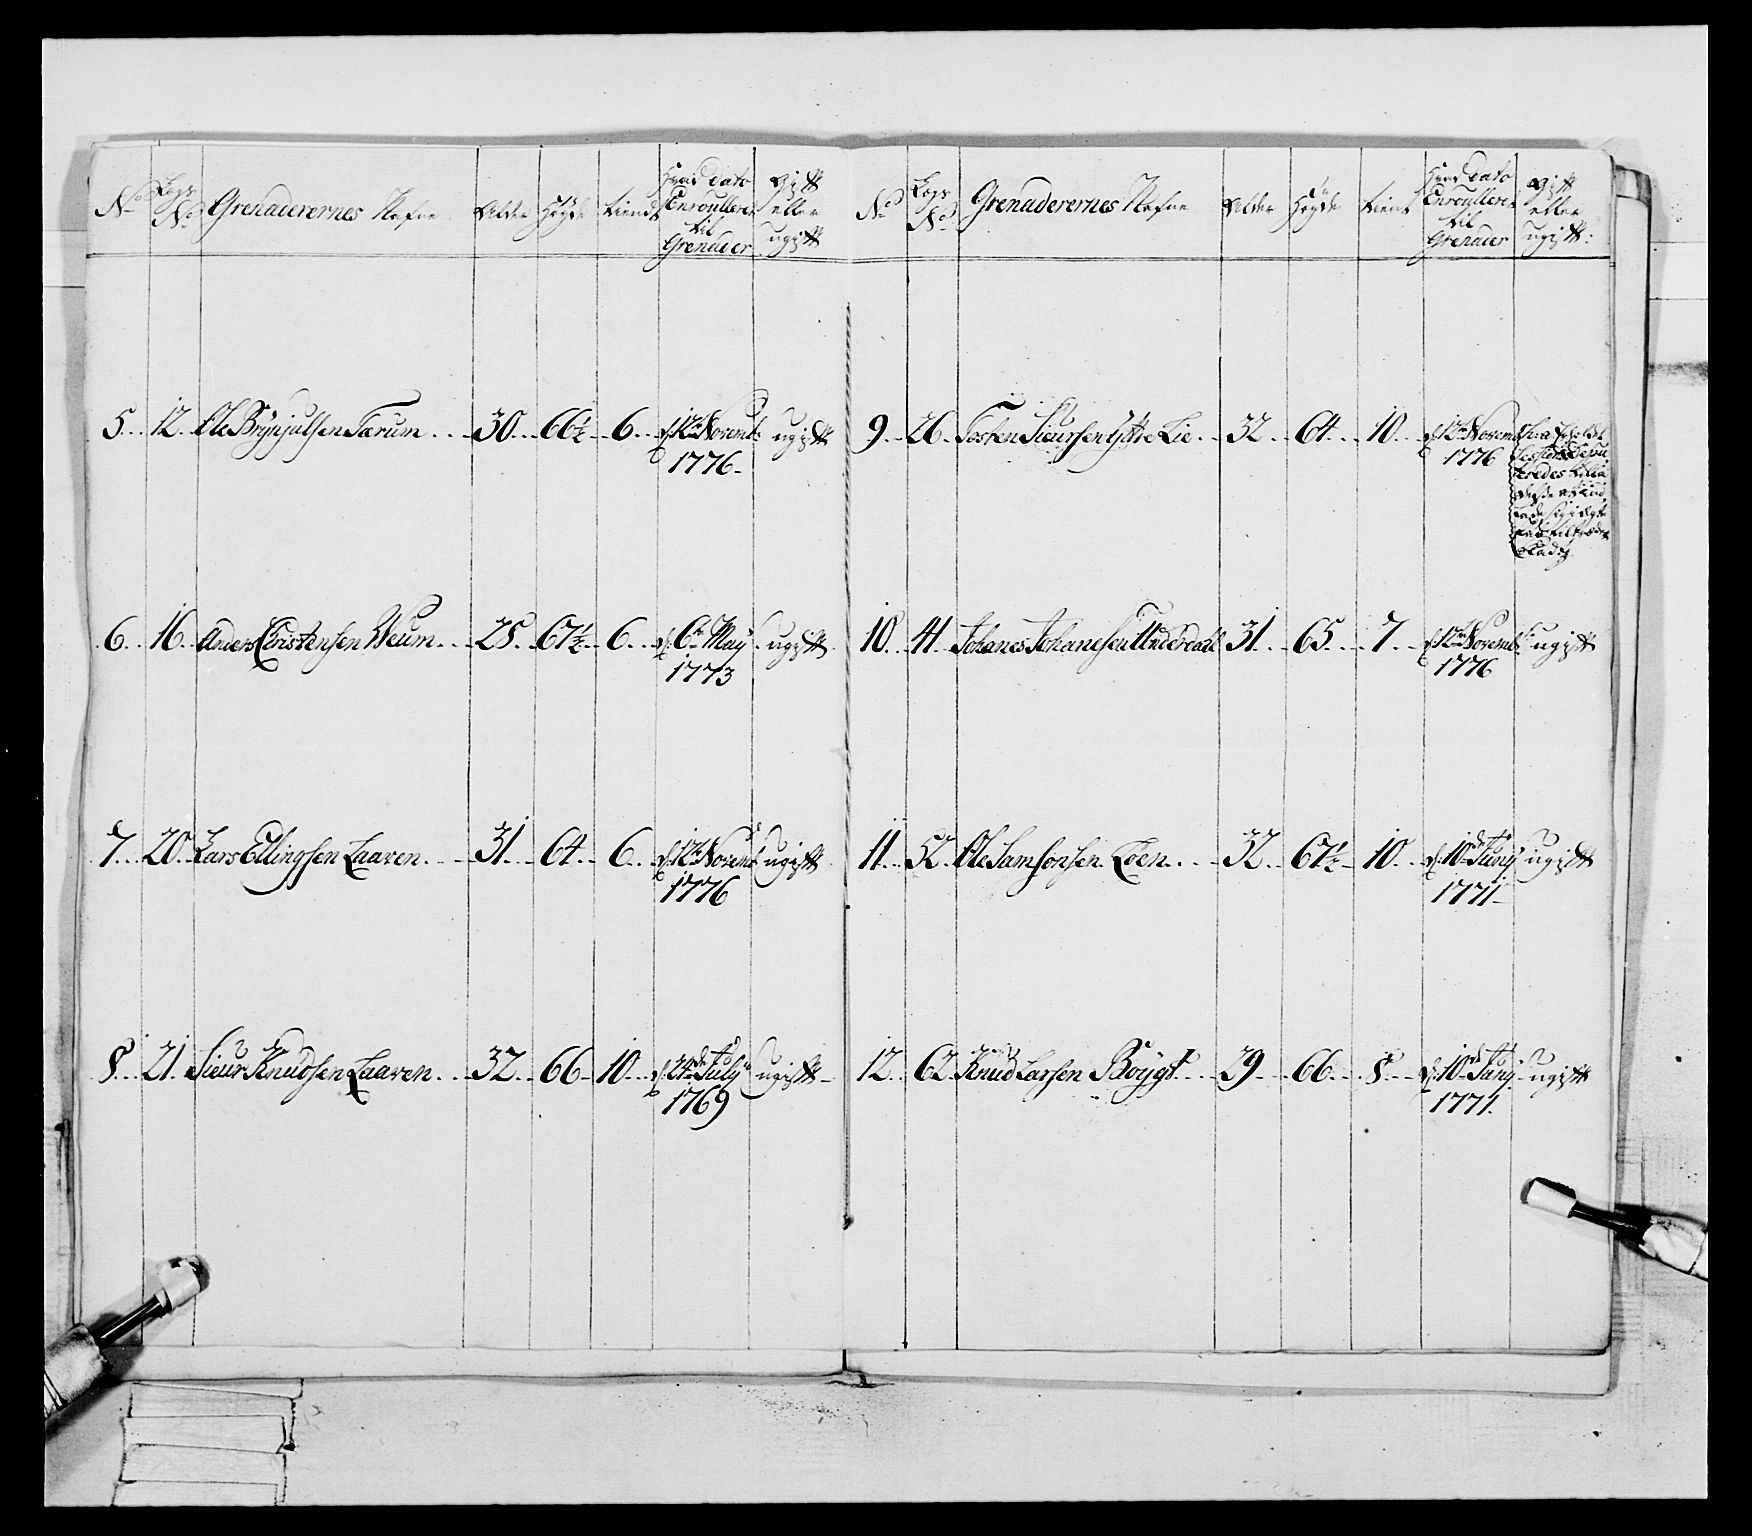 No Lægs No Grenaderernes Nafne Alder Høyde tient Hvad dato Enroulleret til Grenader Gift eller ugift
5. 12. Ole Brÿnjulsen Tarum 30. 66½ 6. d: 12te Novemb: ugift
1776.
6. 16. Anders Christensen Weum 28. 67½ 6. d: 6te May ugift
1773
7. 20. Lars Ellingsen Laaven 31. 64. 6. d: 12te Novemb: ugift
1776
8. 21. Siur Knudsen Laaven 32. 66. 10. d: 24de July ugift
1769
No Lægs No Grenaderernes Nafne Alder Høyde tient Hvad dato Enroulleret til Grenader Gift eller ugift:
9. 26. Tosten Siursen Yttre Lie 32. 64. 10. d: 12te Novemb:
1776
10. 41. Johanes Johanesen Underdahl 31. 65. 7. d: 12te Novemb: ugift
1776
11. 52. Ole Samsonsen Loen 32. 67½ 10. d: 10de Juny ugift
1771
12. 62. Knud Larsen Böygt 29. 66. 8. d: 10de Juny ugift
1771.